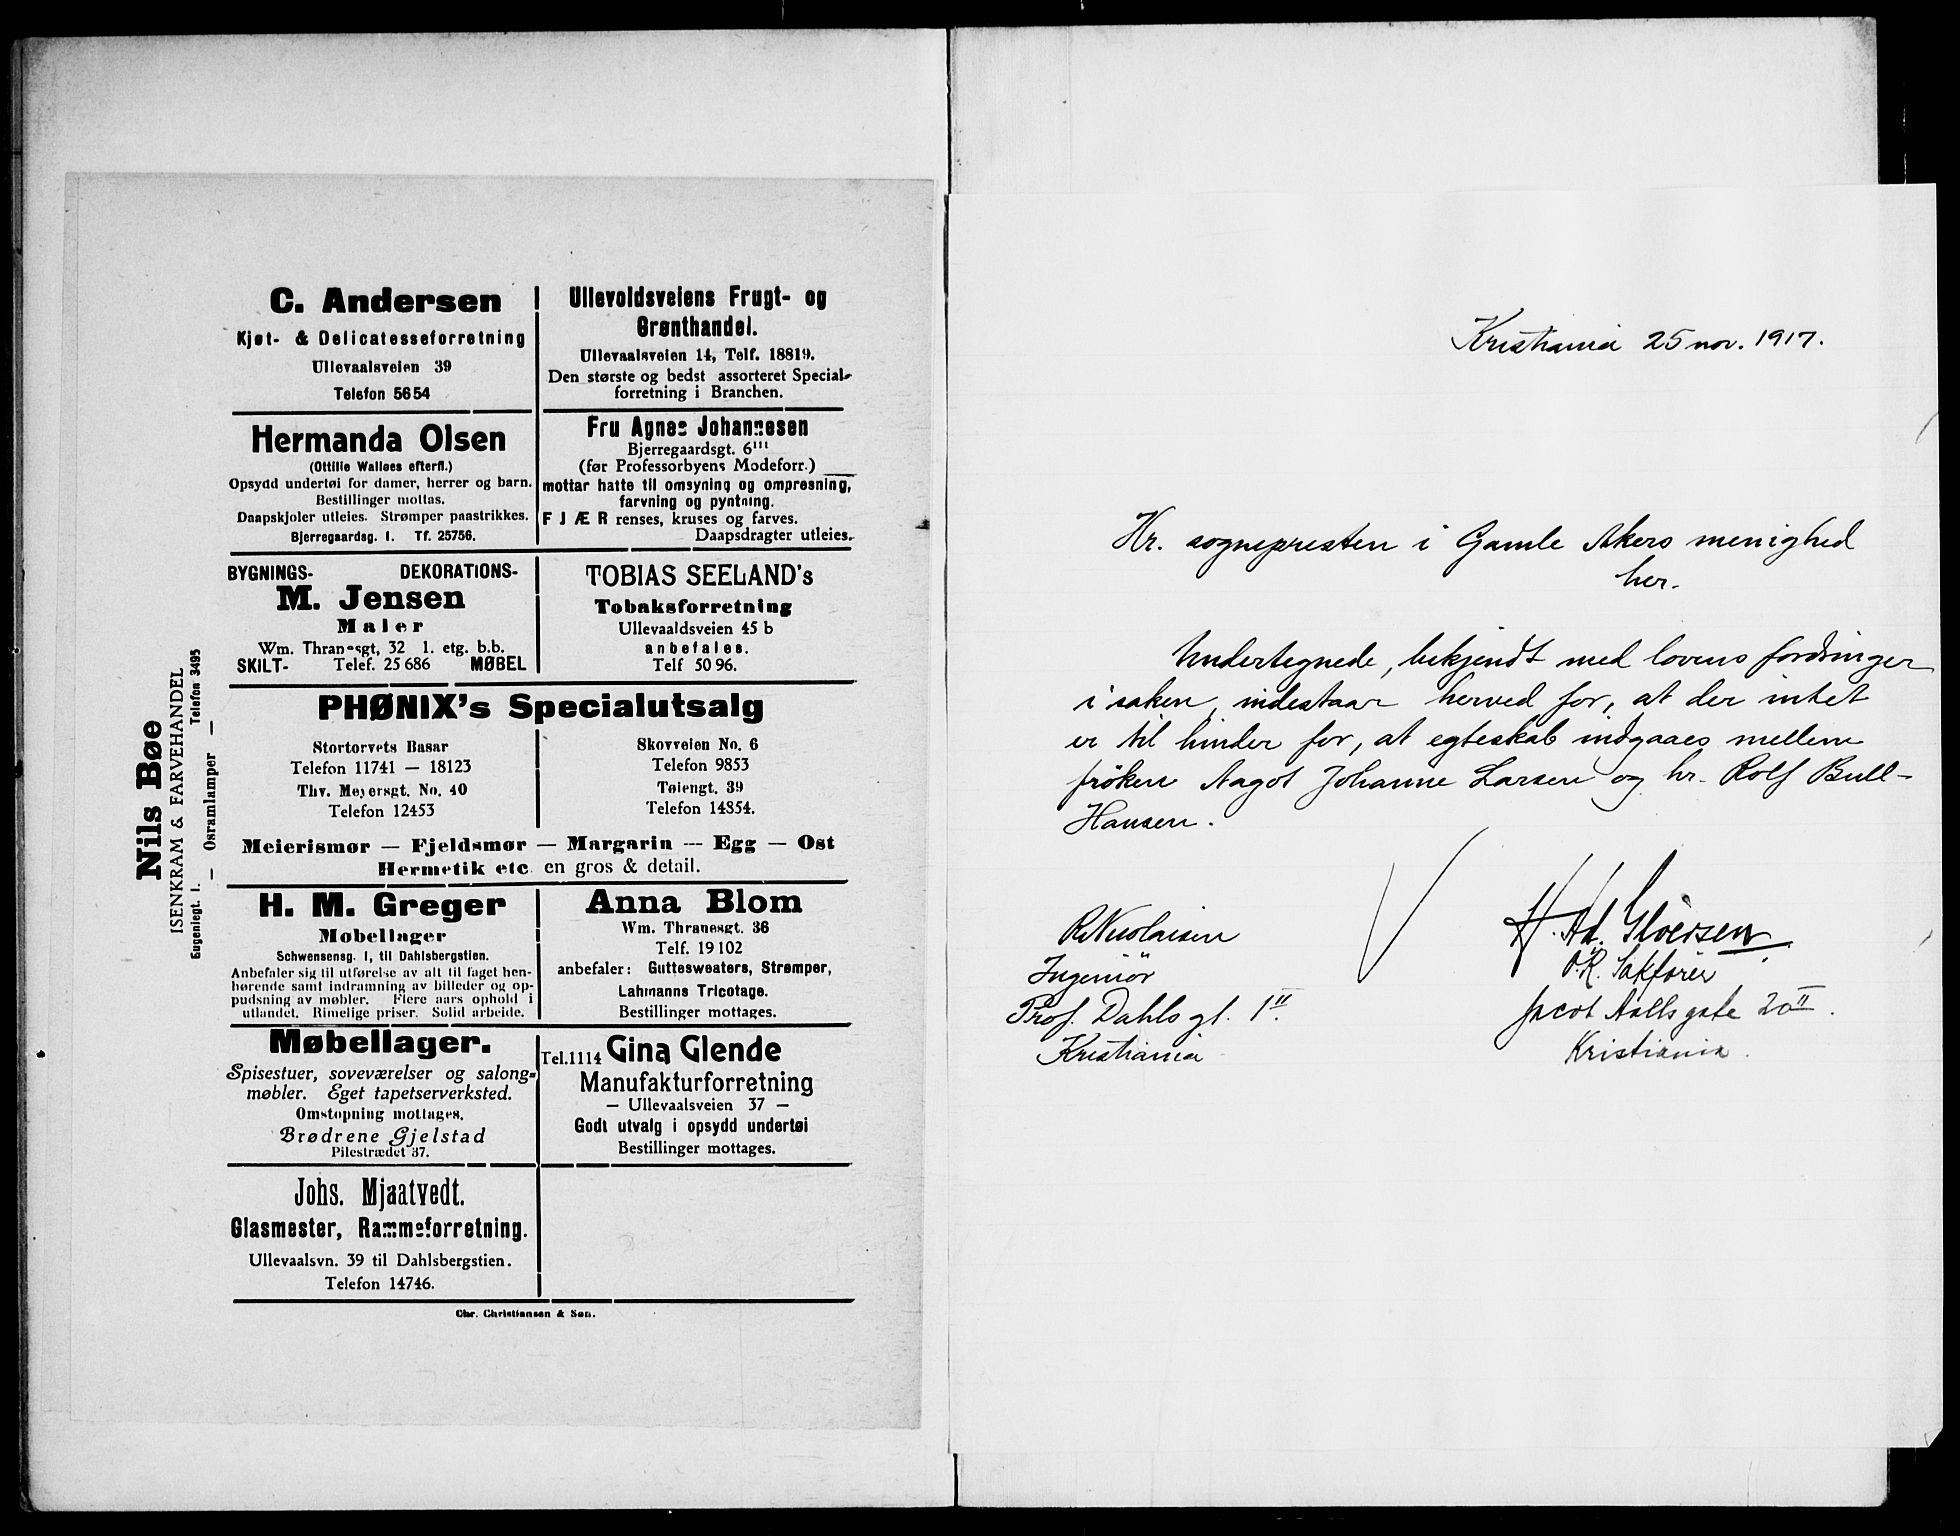 C. Andersen
Kjøt- & Delicatesseforretning
Ullevaalsveien 39
Telefon 5654
Ullevoldsveiens Frugt- og
Grønthandel.
Ullevaalsveien 14, Telf. 18819.
Den største og bedst assorteret Special-
forretning i Branchen.
Hermanda Olsen
(Ottilie Walløes efterfl.)
Opsydd undertøi for damer, herrer og barn.
Bestillinger mottas.
Daapskjoler utleies. Strømper paastrikkes.
Bjerregaardsg. 1. Tf. 25756.
Fru Agnes Johannesen
Bjerregaardsgt. 6III
(før Professorbyens Modeforr.)
mottar hatte til omsyning og ompresning,
farvning og pyntning.
FJÆR renses, kruses og farves.
Daapsdragter utleies.
BYGNINGS- DEKORATIONS-
M. Jensen
Maler
Wm. Thranesgt, 32 1. etg. b.b.
SKILT- Telef. 25686 MØBEL
TOBIAS SEELAND's
Tobaksforretning
Ullevaaldsveien 45 b
anbefales.
Telf 5096.
Nils Bøe
ISENKRAM & FARVEHANDEL
Eugeniegt. 1. — Osramlamper — Telefon 3495
PHØNIX's Specialutsalg
Stortorvets Basar
Telefon 11741 — 18123
Thv. Meyersgt. No. 40
Telefon 12453
Skovveien No. 6
Telefon 9853
Tøiengt. 39
Telefon 14854.
Meierismør — Fjeldsmør — Margarin — Egg — Ost
Hermetik etc en gros & detail.
H. M. Greger
Møbellager
Schwensensg. 1, til Dahlsbergstien.
Anbefaler sig til utførelse av alt til faget hen-
hørende samt indramning av billeder og op-
pudsning av møbler. Flere aars ophold i
utlandet. Rimelige priser. Solid arbeide.
Anna Blom
Wm. Thranesgt. 36
Telf. 19102
anbefaler: Guttesweaters, Strømper,
Lahmanns Tricotage.
Bestillinger mottages.
Møbellager.
Spisestuer, soveværelser og salong-
møbler. Eget tapetserverksted.
Omstopning mottages.
Brødrene Gjelstad
Pilestrædet 37.
Tel. 1114 Gina Glende
Manufakturforretning
— Ullevaalsveien 37 —
Godt utvalg i opsydd undertøi
Bestillinger mottages.
Johs. Mjaatvedt.
Glasmester, Rammeforretning.
Ullevaalsvn. 39 til Dahlsbergstien.
Telefon 14746.
Chr. Christiansen & Søn.
Kristiania 25 nov. 1917.
Hr. sognepresten i Gamle Akers menighed
her.
Undertegnede, bekjendt med lovens fordringer
i saken, indestaar herved for, at der intet
er til hinder for, at egteskab indgaaes mellem
frøken Aagot Johanne Larsen og hr. Rolf Bull-
Hansen.
R Nicolaisen
Ingeniör
Prof. Dahls gt. 1II.
Kristiania
H. Ad. Gløersen
O.R. Sakfører
Jacob Aalls gate 20II.
Kristiania.